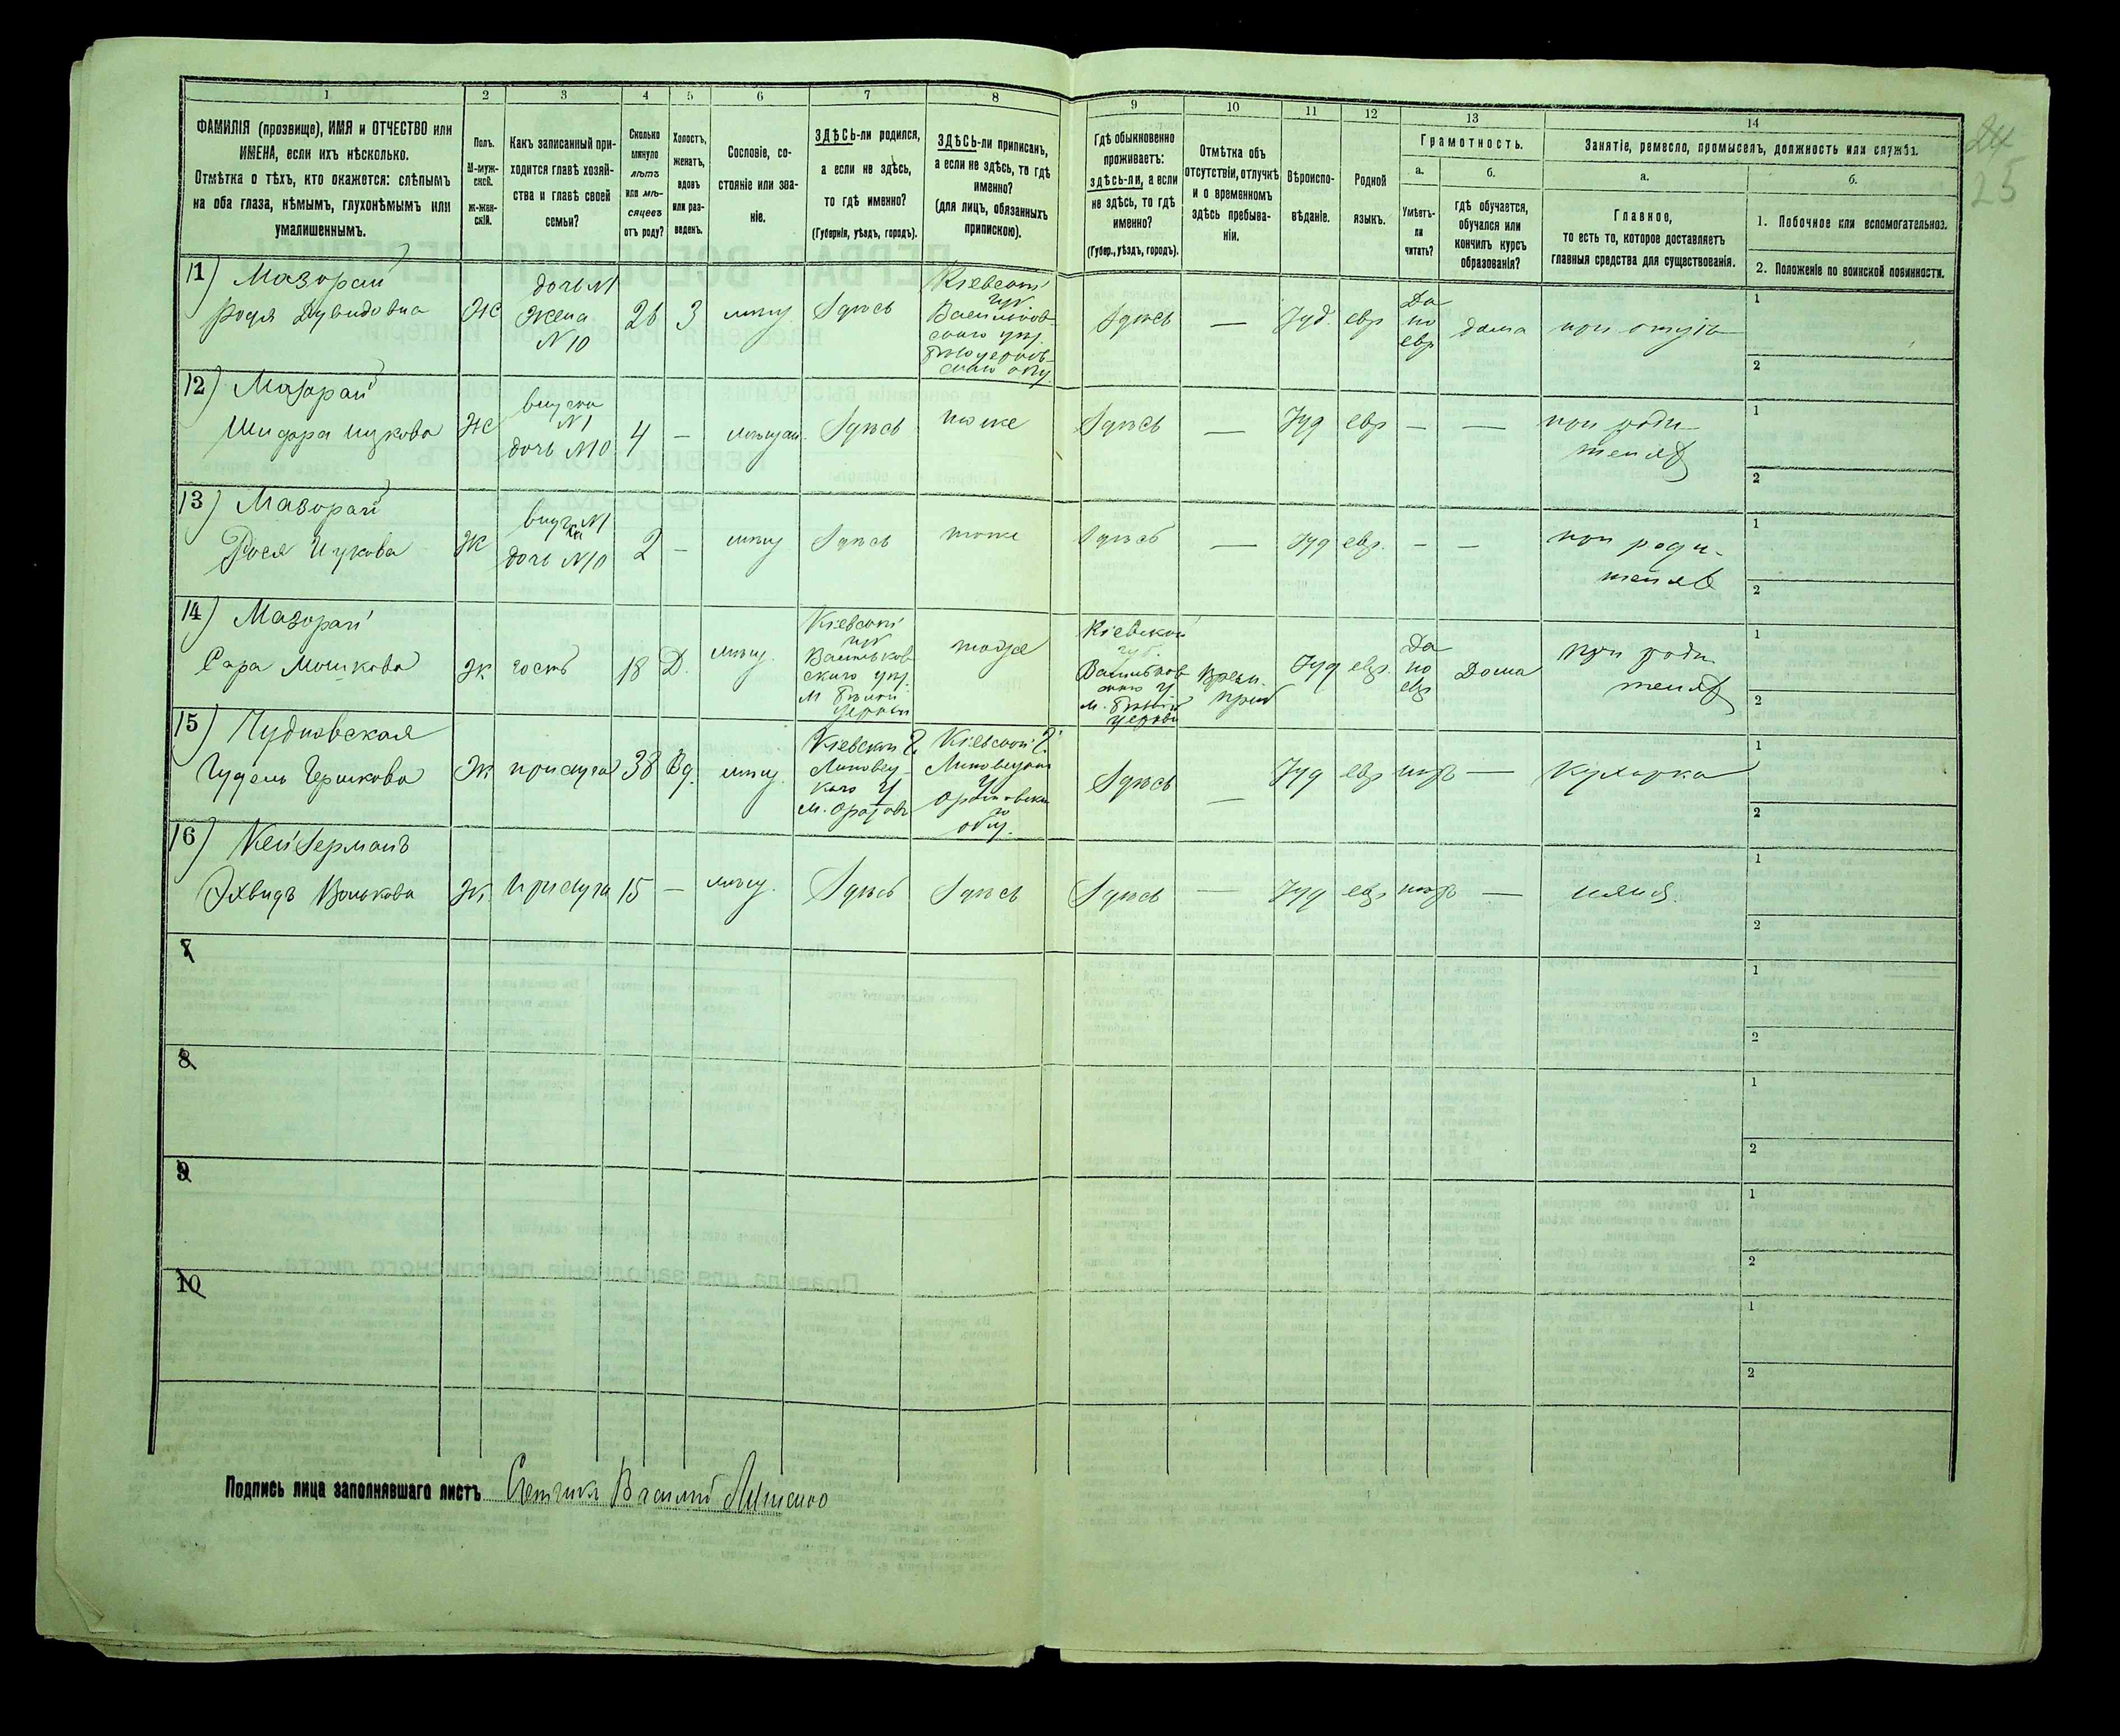 1 2 3 4 5 6 7 8 9 10 11 12 13 14
ФАМИЛІЯ (прозвище), ИМЯ и ОТЧЕСТВО или
ИМЕНА, если ихъ нѣсколько.
Отмѣтка о тѣхъ, кто окажется: слѣпымъ
на оба глаза, нѣмымъ, глухонѣмымъ или
умалишеннымъ.
Полъ.
М-муж-
ской.
Ж-жен-
скій.
Какъ записанный при-
ходится главѣ хозяй-
ства и главѣ своей
семьи?
Сколько
минуло
лѣтъ
или мѣ-
сяцевъ
отъ роду?
Холостъ,
женатъ,
вдовъ
или раз-
веденъ.
Сословіе, со-
стояніе или зва-
ніе.
ЗДѢСЬ-ли родился,
а если не здѣсь,
то гдѣ именно?
(Губернія, уѣздъ, городъ).
ЗДѢСЬ-ли приписанъ,
а если не здѣсь, то гдѣ
именно?
(для лицъ, обязанныхъ
припискою).
Гдѣ обыкновенно
проживаетъ:
здѣсь-ли, а если
не здѣсь, то гдѣ
именно?
(Губер., уѣздъ, городъ).
Отмѣтка объ
отсутствіи, отлучкѣ
и о временномъ
здѣсь пребыва-
ніи.
Вѣроиспо-
вѣданіе.
Родной
языкъ.
Грамотность.
а.
Умѣетъ-
ли
читать?
б.
гдѣ обучается,
обучался или
кончилъ курсъ
образованія?
Занятіе, ремесло, промыселъ, должность или служба.
а.
Главное,
то есть то, которое доставляетъ
главныя средства для существованія.
б.
1. Побочное или вспомогательное.
2. Положеніе по воинской повинности.
24
25
11) Мазорай
Дувидовна
Ж
дочь N1
жена
N10
26 З мѣщ Здѣсь
Кіевской
губ
Васильков-
скаго уѣз.
бѣлоцерков-
скаго общ
Здѣсь — Іуд. евр
Да
по
евр
дома при отцѣ
1
2
12) Мазорай
Ицкова
Ж
внучка
N1
дочь N10
4 — мѣщан. Здѣсь тоже Здѣсь — Іуд евр — —
при роди-
теляхъ
1
2
13) Мазорай
Рося Ицкова
Ж
внучка N1
дочь N10
2 — мѣщ Здѣсь тоже Здѣсь — Іуд евр. — —
при роди-
теляхъ
1
2
14) Мазорай
Сара Мошкова
Ж гость 18 Д. мѣщ.
Кіевской
губ
Васильков
скаго уѣз.
м бѣлой
церкви
тоже
Кіевской
губ.
Васильков
скаго у.
м. бѣлой
церкви
Врем.
преб
Іуд евр.
Да
по
евр
Дома
при роди
теляхъ
1
2
15) Чудновская
Гершкова
Ж прислуга 38 Вд. мѣщ.
Кіевской г.
Липовец-
каго у
м. Оратовъ
Кіевской г.
Липовецкаго
у
Оратовска
го
общ.
Здѣсь — Іуд евр нѣтъ — Кухарка
1
2
16) Кейзерманъ
Волькова
Ж прислуга 15 — мѣщ. Здѣсь Здѣсь Здѣсь — Іуд евр нѣтъ — няня.
1
2
7
1
2
8
1
2
9
1
2
10
1
2
Подпись лица заполнявшаго листъ Счетчикъ Василій